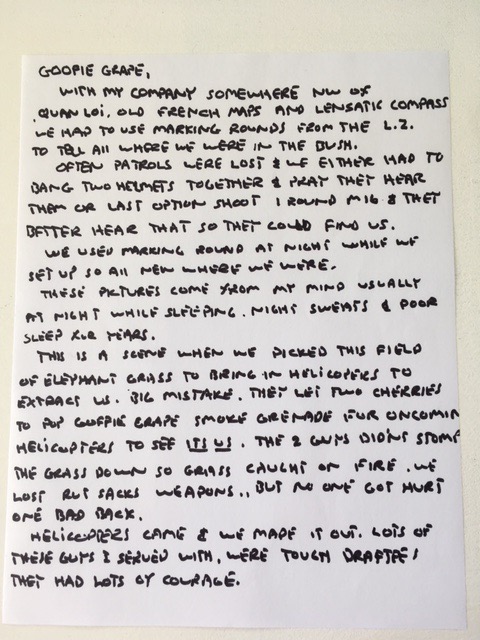 GOOPIE GRAPE,
WITH MY COMPANY SOMEWHERE NW OF
QUAN LOI, OLD FRENCH MAPS AND LENSATIC COMPASS
WE HAD TO USE MARKING ROUNDS FROM THE L.Z.
TO TELL ALL WHERE WE WERE IN THE BUSH.
OFTEN PATROLS WERE LOST & WE EITHER HAD TO
BANG TWO HELMETS TOGETHER & PRAY THEY HEAR
THEM OR LAST OPTION SHOOT 1 ROUND M16 & THEY
BETTER HEAR THAT SO THEY COULD FIND US.
WE USED MARKING ROUND AT NIGHT WHILE WE
SET UP SO ALL NEW WHERE WE WERE.
THESE PICTURES COME FROM MY MIND USUALLY
AT NIGHT WHILE SLEEPING. NIGHT SWEATS & POOR
SLEEP FOR YEARS.
THIS IS A SCENE WHEN WE PICKED THIS FIELD
OF ELEPHANT GRASS TO BRING IN HELICOPTERS TO
EXTRACT US. BIG MISTAKE. THEY LET TWO CHERRIES
TO POP GOOPIE GRAPE SMOKE GRENADE FOR ONCOMIN
HELICOPTERS TO SEE ITS US. THE 2 GUYS DIDN'T STOMP
THE GRASS DOWN SO GRASS CAUGHT ON FIRE. WE
LOST RUT SACKS WEAPONS,, BUT NO ONE GOT HURT
ONE BAD BACK.
HELICOPTERS CAME & WE MADE IT OUT. LOTS OF
THESE GUYS I SERVED WITH, WERE TOUGH DRAFTEE!
THEY HAD LOTS OF COURAGE.